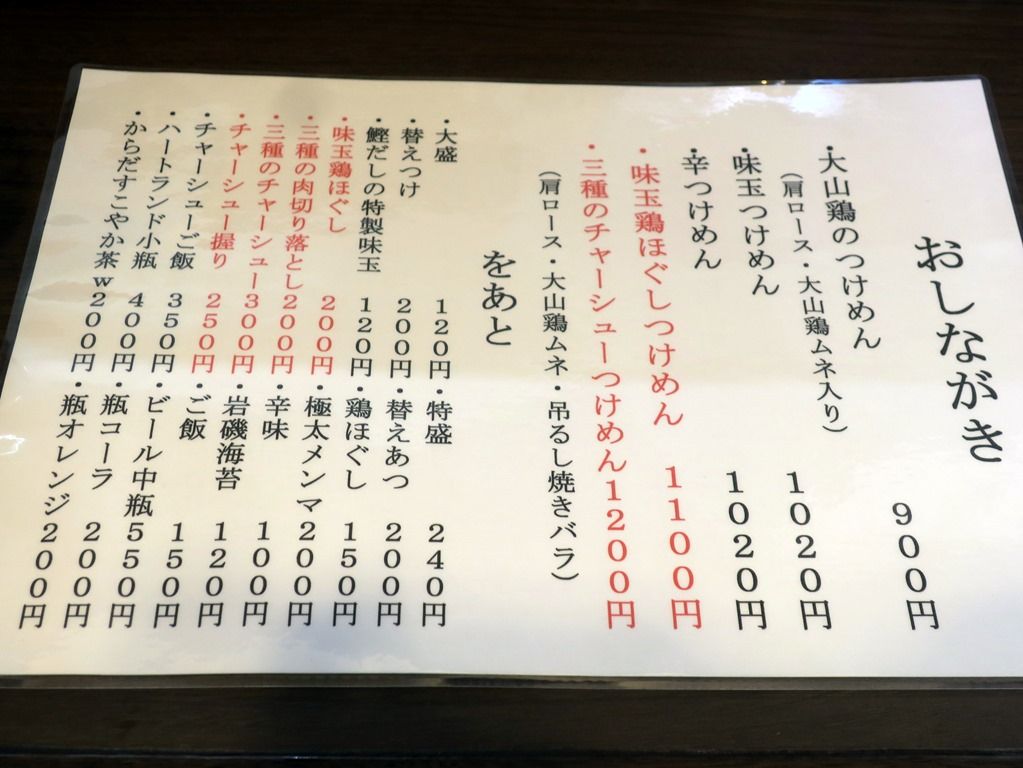 おしながき
・大山鶏のつけめん 900円
（肩ロース・大山鶏ムネ入り）
・味玉つけめん 1020円
・辛つけめん 1020円
・味玉鶏ほぐしつけめん 1100円
・三種のチャーシューつけめん 1200円
（肩ロース・大山鶏ムネ・吊るし焼きバラ）
をあと
・大盛 120円
・特盛 240円
・替えつけ 200円
・替えあつ 200円
・鰹だしの特製味玉 120円
・鶏ほぐし 150円
・味玉鶏ほぐし 200円
・極太メンマ 200円
・三種の肉切り落とし 200円
・辛味 100円
・三種のチャーシュー 300円
・岩磯海苔 120円
・チャーシュー握り 250円
・ご飯 150円
・チャーシューご飯 350円
・ビール中瓶 550円
・ハートランド小瓶 400円
・瓶コーラ 200円
・からだすこやか茶w 200円
・瓶オレンジ 200円